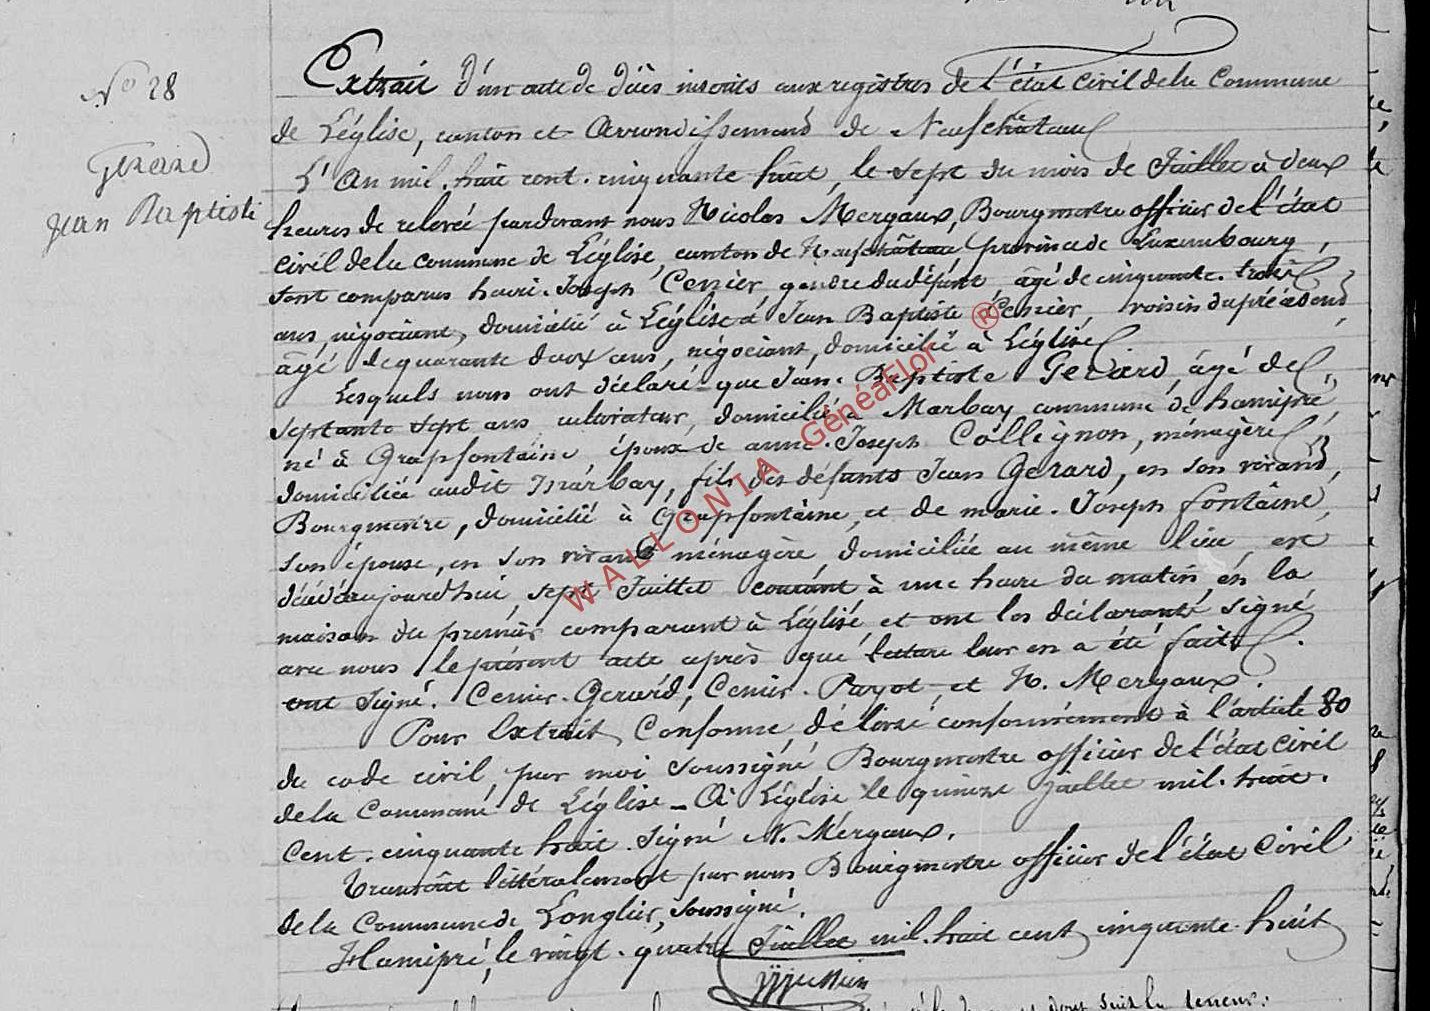 N° 28
Gerard
Jean Baptiste
Extrait d'un acte de décès inscrits aux registres de l'état civil de la Commune
de Léglise, canton et Arrondissement de Neufchâteau
L'An mil. huit cent. cinquante huit, le sept du mois de Juillet à deux
heures de relevée pardevant nous Nicolas Mergaux, Bourgmestre officier de l'état
civil de la commune de Léglise, canton de Neufchâteau, province de Luxembourg,
sont comparus henri. Joseph Cenier gendre du défunt, âgé de cinquante. trois
ans, négociant, domicilié à Léglise & Jean Baptiste Cenier, voisin du précédent,
âgé de quarante deux ans, négociant, domicilié à Léglise
Lesquels nous ont déclaré que Jean. Baptiste Gerard, âgé de
septante sept ans cultivateur, domicilié à Marbay, commune de hamipré,
né à Grapfontaine époux de anne. Joseph Collignon, ménagère,
domiciliée audit Marbay, fils des défunts Jean Gerard, en son vivant,
Bourgmestre, domicilié à Grapfontaine, et de marie. Joseph fontaine,
son épouse, en son vivant ménagère, domiciliée au même lieu, est
décédé aujourd'hui, sept Juillet courant à une heure du matin, en la
maison du premier comparant à Léglise et ont les déclarants signé
avec nous le présent acte après que lecture leur en a été faite.
ont signé. Cenier. Gerard, Cenier. Payot, et N. Mergaux.
Pour Extrait Conforme, délivré conformément à l'article 80
du code civil, par moi soussigné Bourgmestre officier de l'état civil
de la Commune de Léglise - A Léglise le quinze juillet mil. huit.
cent. cinquante huit signé N. Mergaux.
transcrit littéralement par nous Bourgmestre officier de l'état civil
de la Commune de Longlier, soussigné.
Hamipré, le vingt. quatre Juillet mil. huit cent cinquante huit
dont suit la teneur:
WALLONIA GénéaFlor ®